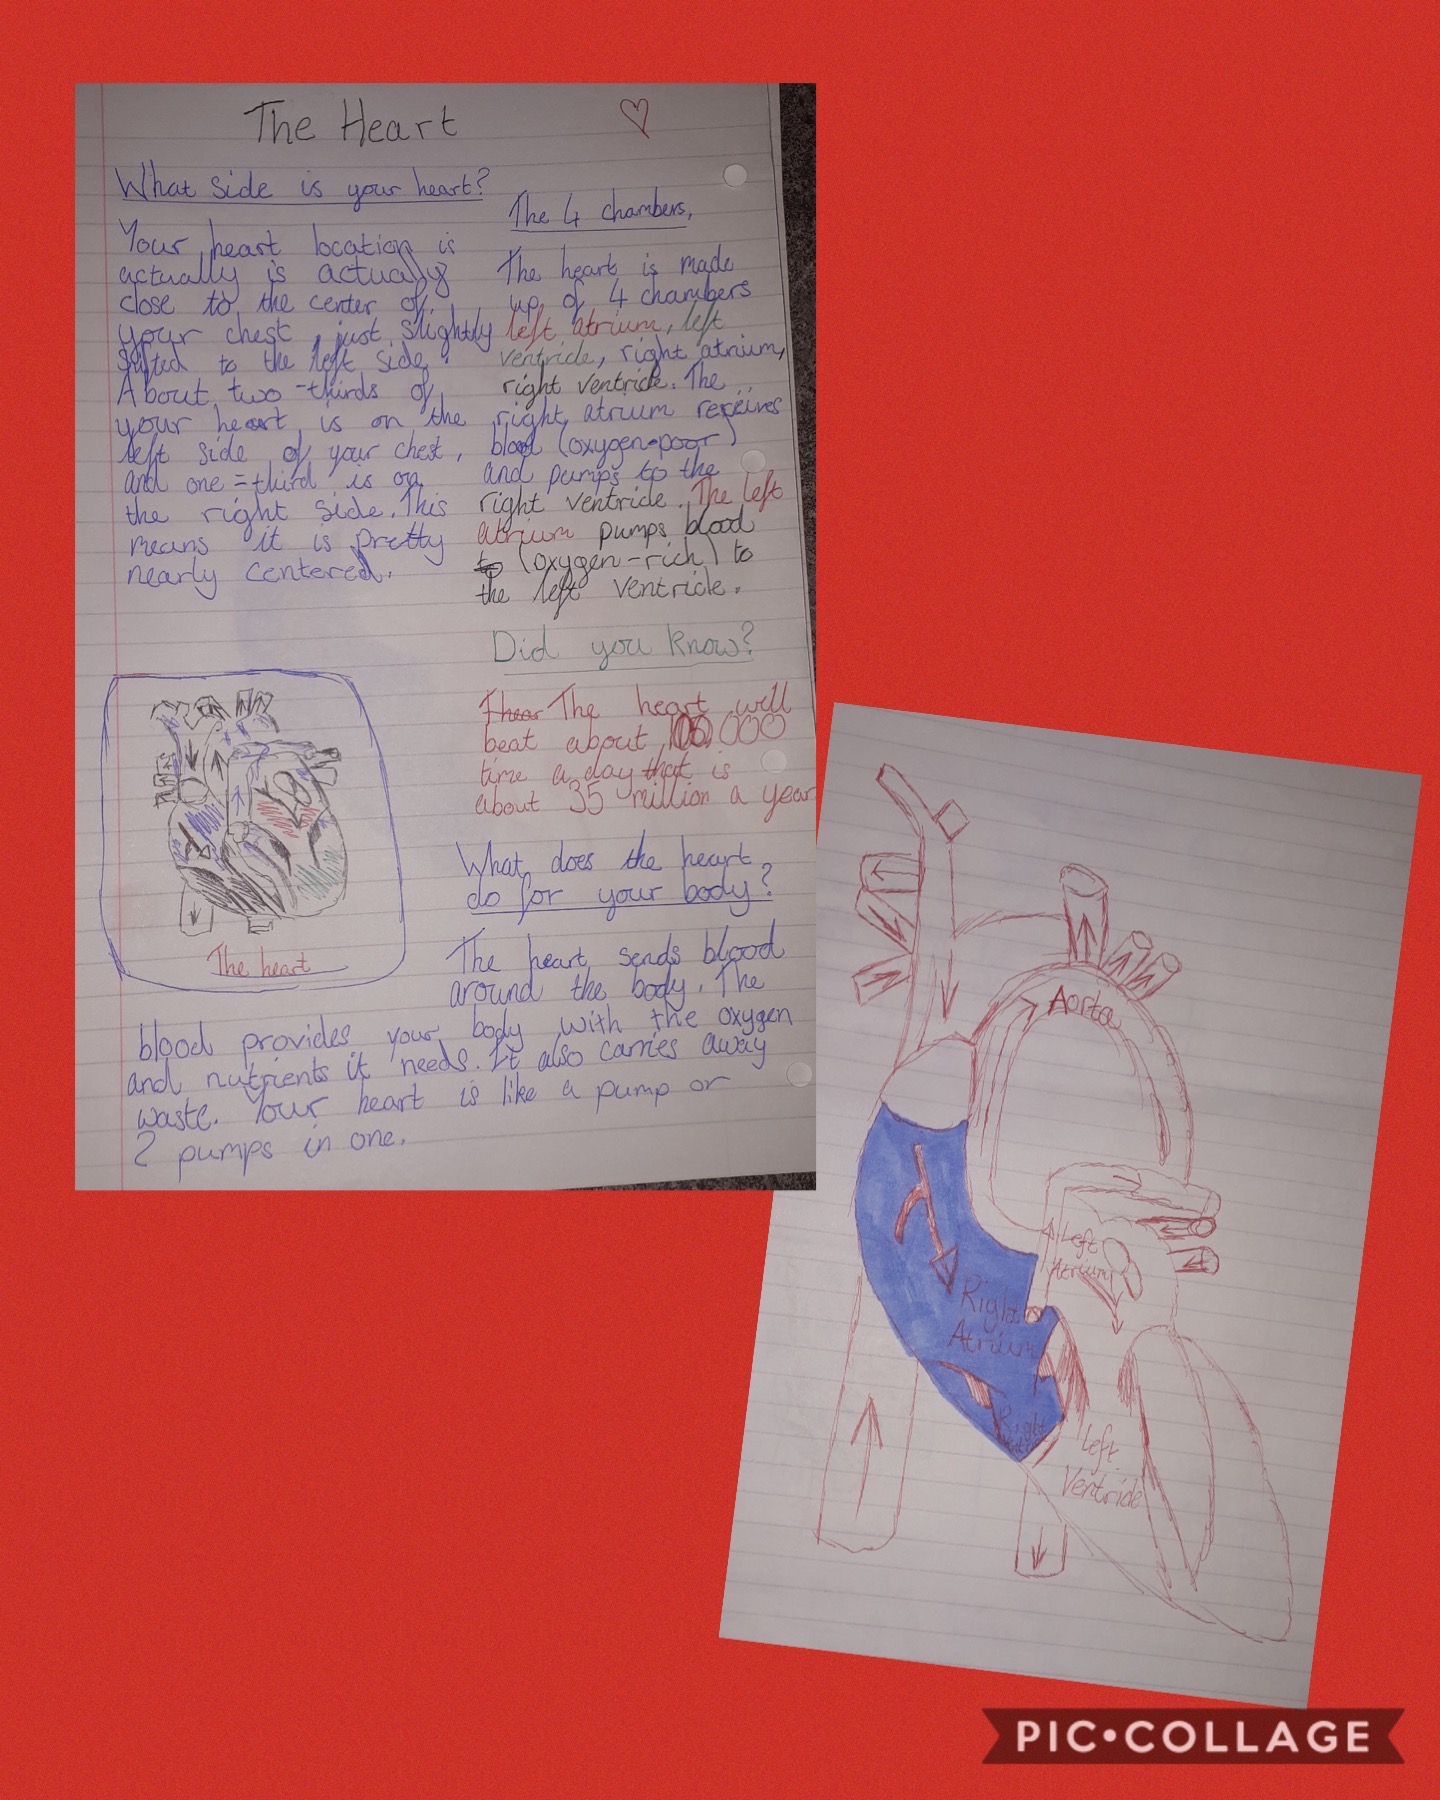 The Heart
What side is your heart?
Your heart location is
actually is actually
close to the center of
your chest, just slightly
to the left side.
About two-thirds of
your heart is on the
left side of your chest,
and one=third is on
the right side. This
means it is pretty
nearly centered.
The 4 chambers,
The heart is made
up of 4 chambers
left atrium, left
ventricle, right atrium,
right ventricle. The
right atrium receives
blood (oxygen-poor)
and pumps to the
right ventricle. The left
atrium pumps blood
to (oxygen-rich) to
the left ventricle.
Did you know?
The heart will
beat about 100,000
time a day that is
about 35 million a year
What does the heart
do for your body?
The heart sends blood
around the body. The
blood provides your body with the oxygen
and nutrients it needs. It also carries away
waste. Your heart is like a pump or
2 pumps in one.
The heart
Aorta
Left
Atrium
Right
Atrium
Right
Left
Ventricle
PIC•COLLAGE